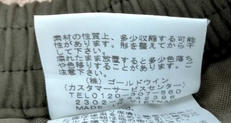 素材の性質上、多少収縮する可能
性があります。形を整えてから干
して下さい。
濡れたまま放置すると多少色落ち
や色移りすることがあります。ご
注意下さい。
(株) ゴールドウイン
(カスタマーサービスセンター)
TEL0120-307-560
MADE